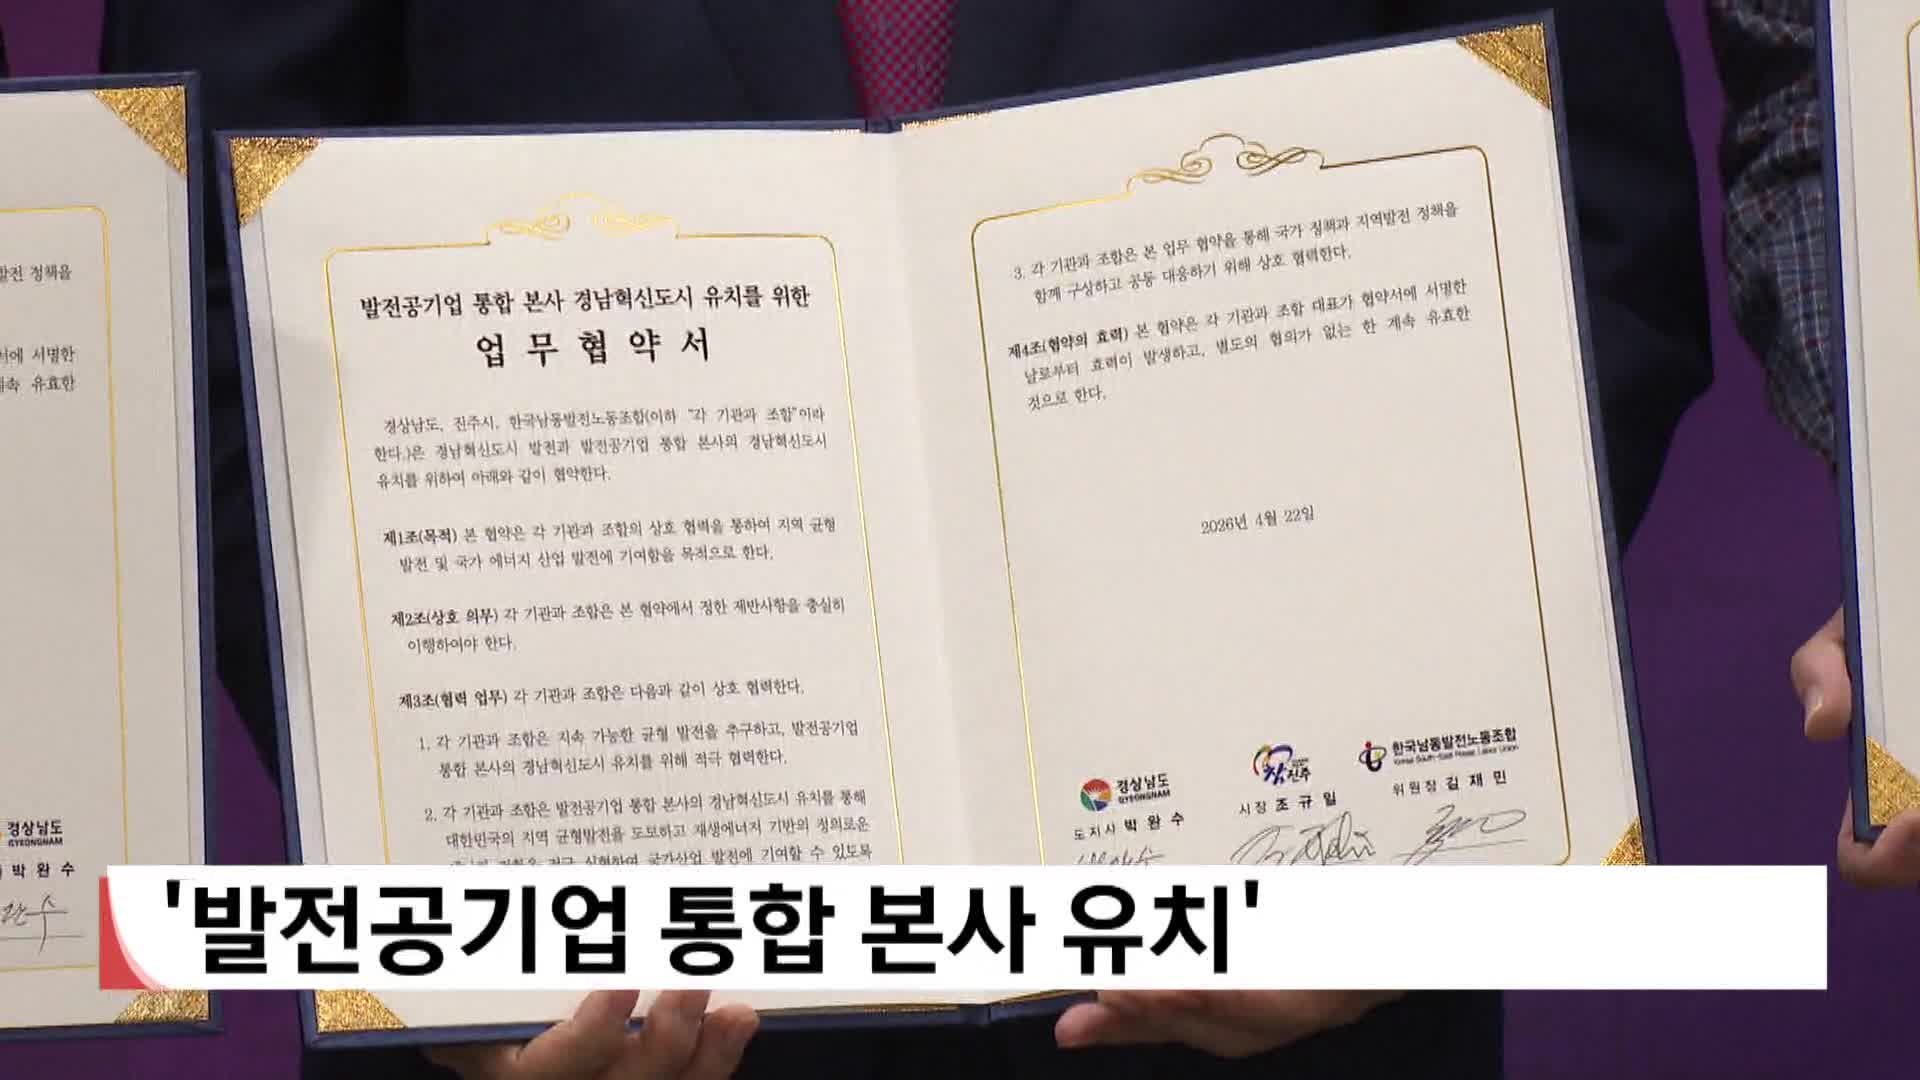 발전 정책을
서에 서명한
계속 유효한
경상남도
GYEONGNAM
박 완 수
발전공기업 통합 본사 경남혁신도시 유치를 위한
업 무 협 약 서
경상남도, 진주시, 한국남동발전노동조합(이하 "각 기관과 조합"이라
한다.)은 경남혁신도시 발전과 발전공기업 통합 본사의 경남혁신도시
유치를 위하여 아래와 같이 협약한다.
제1조(목적) 본 협약은 각 기관과 조합의 상호 협력을 통하여 지역 균형
발전 및 국가 에너지 산업 발전에 기여함을 목적으로 한다.
제2조(상호 의무) 각 기관과 조합은 본 협약에서 정한 제반사항을 충실히
이행하여야 한다.
제3조(협력 업무) 각 기관과 조합은 다음과 같이 상호 협력한다.
1. 각 기관과 조합은 지속 가능한 균형 발전을 추구하고, 발전공기업
통합 본사의 경남혁신도시 유치를 위해 적극 협력한다.
2. 각 기관과 조합은 발전공기업 통합 본사의 경남혁신도시 유치를 통해
대한민국의 지역 균형발전을 도모하고 재생에너지 기반의 정의로운
적극 실현하여 국가산업 발전에 기여할 수 있도록
3. 각 기관과 조합은 본 업무 협약을 통해 국가 정책과 지역발전 정책을
함께 구상하고 공동 대응하기 위해 상호 협력한다.
제4조(협약의 효력) 본 협약은 각 기관과 조합 대표가 협약서에 서명한
날로부터 효력이 발생하고, 별도의 협의가 없는 한 계속 유효한
것으로 한다.
2026년 4월 22일
경상남도
GYEONGNAM
도지사 박 완 수
참 진주
시장 조 규 일
한국남동발전노동조합
Korea South-East Power Labor Union
위원장 김 재 민
'발전공기업 통합 본사 유치'